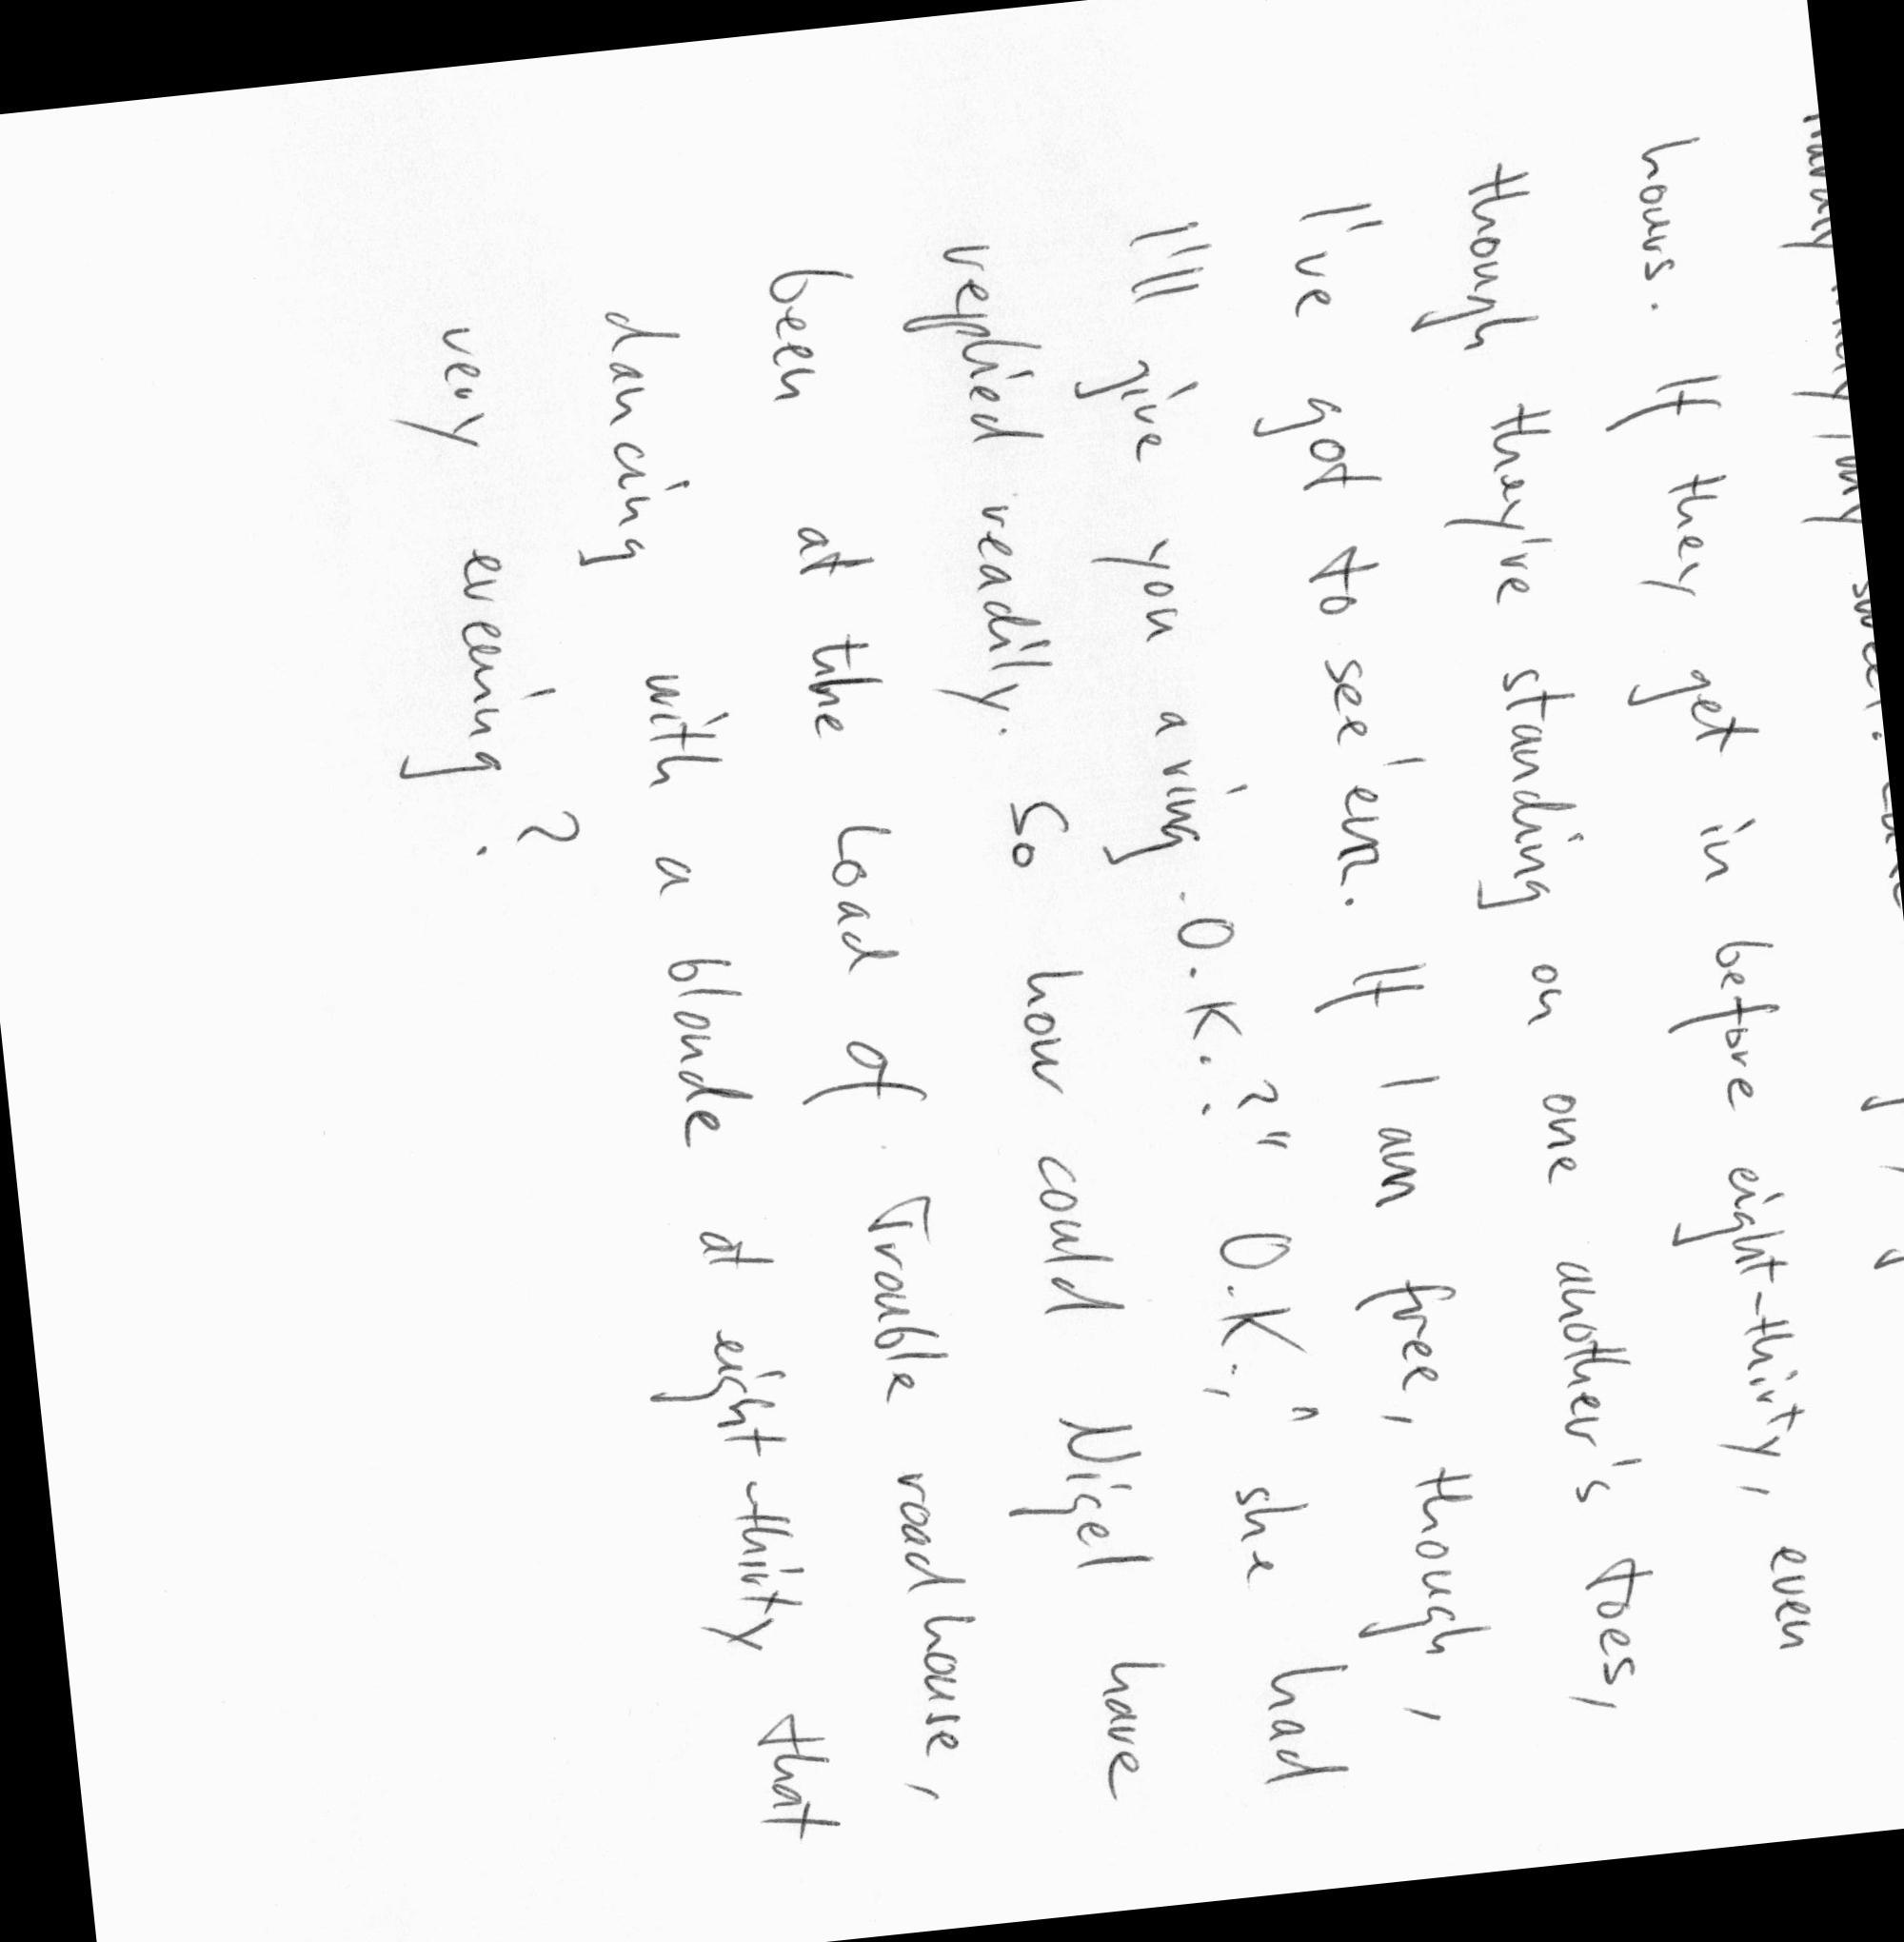 hours. If they get in before eight-thirty, even
though they're standing on one another's toes,
I've got to see 'em. If I am free, though,
I'll give you a ring. O.K.?" "O.K.," she had
replied readily. So how could Nigel have
been at the Load of Trouble roadhouse,
dancing with a blonde at eight-thirty that
very evening?